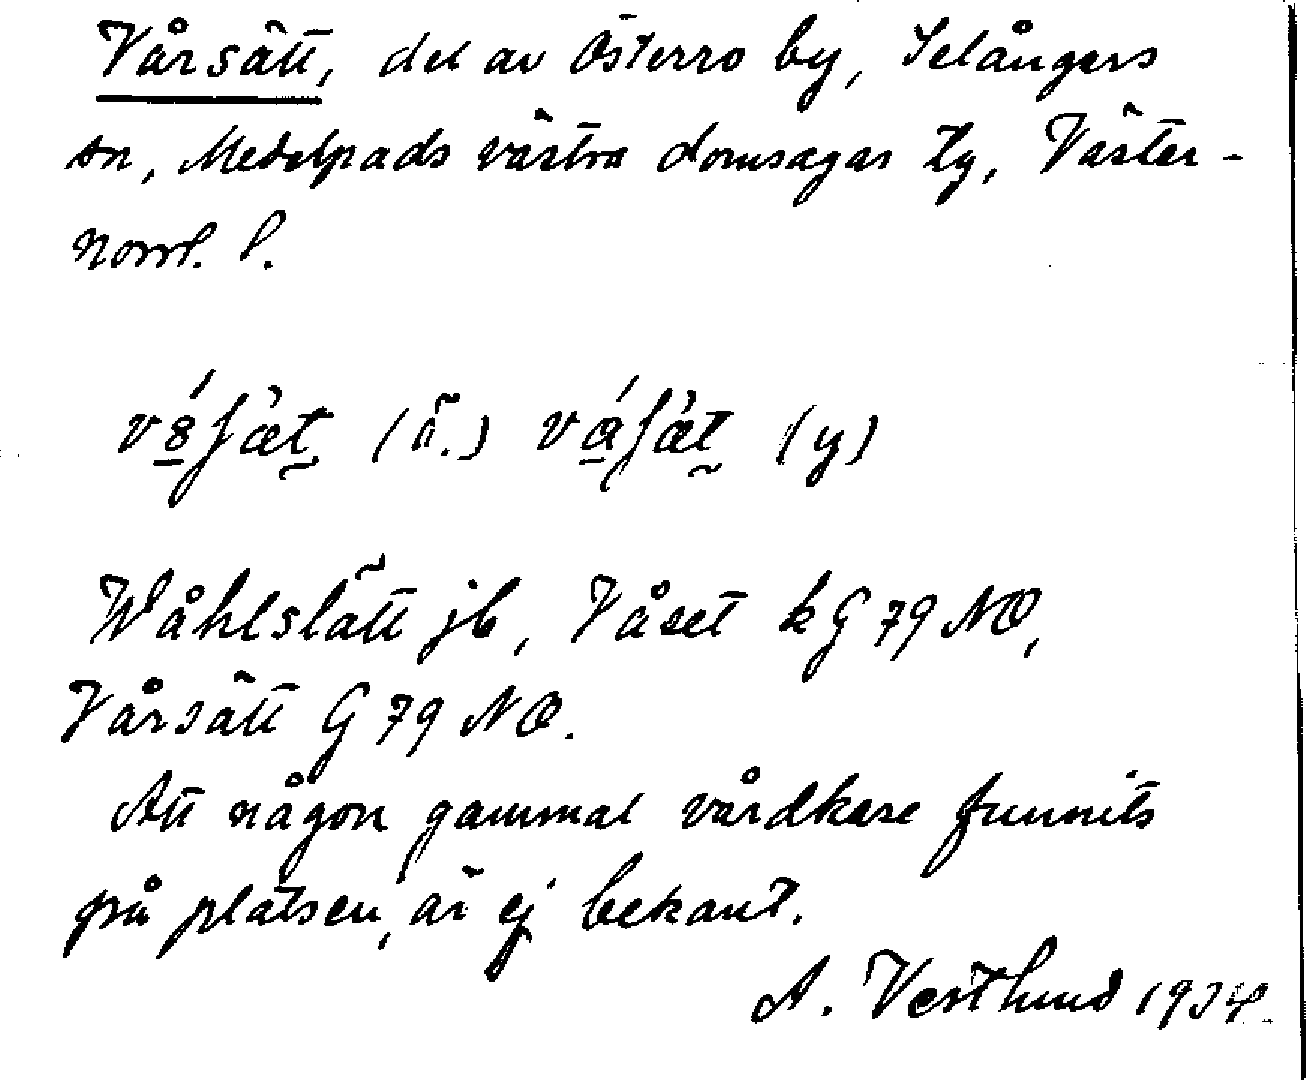 Vårsätt, del av Österro by, Selångers
sn, Medelpads västra domsagas tg, Väster-
norrl. l.
(ä.) (y)
Wåhlslätt jb, Våset k G 79 NO,
Vårsätt G 79 NO.
Att någon gammal vårdkase funnits
på platsen, är ej bekant.
A. Vestlund 1934.